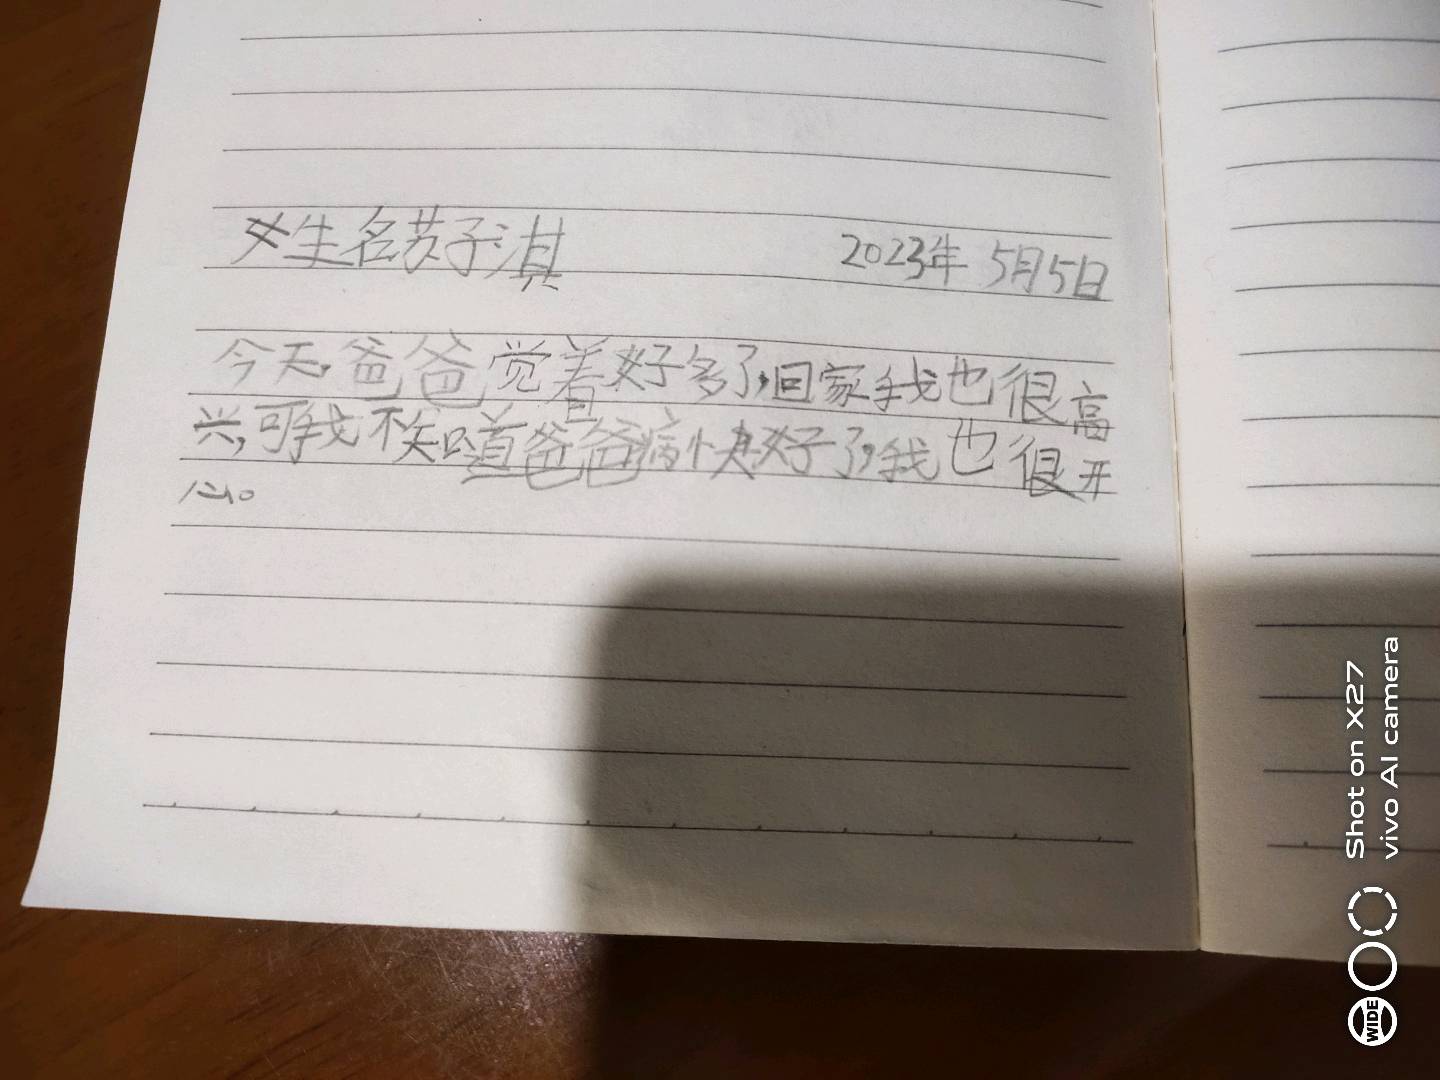 姓名苏子淇 2023年 5月5日
今天,爸爸觉着好多了,回家我也很高
兴,可我不知道爸爸病快好了,我也很开
心。
Shot on X27
vivo AI camera
WIDE